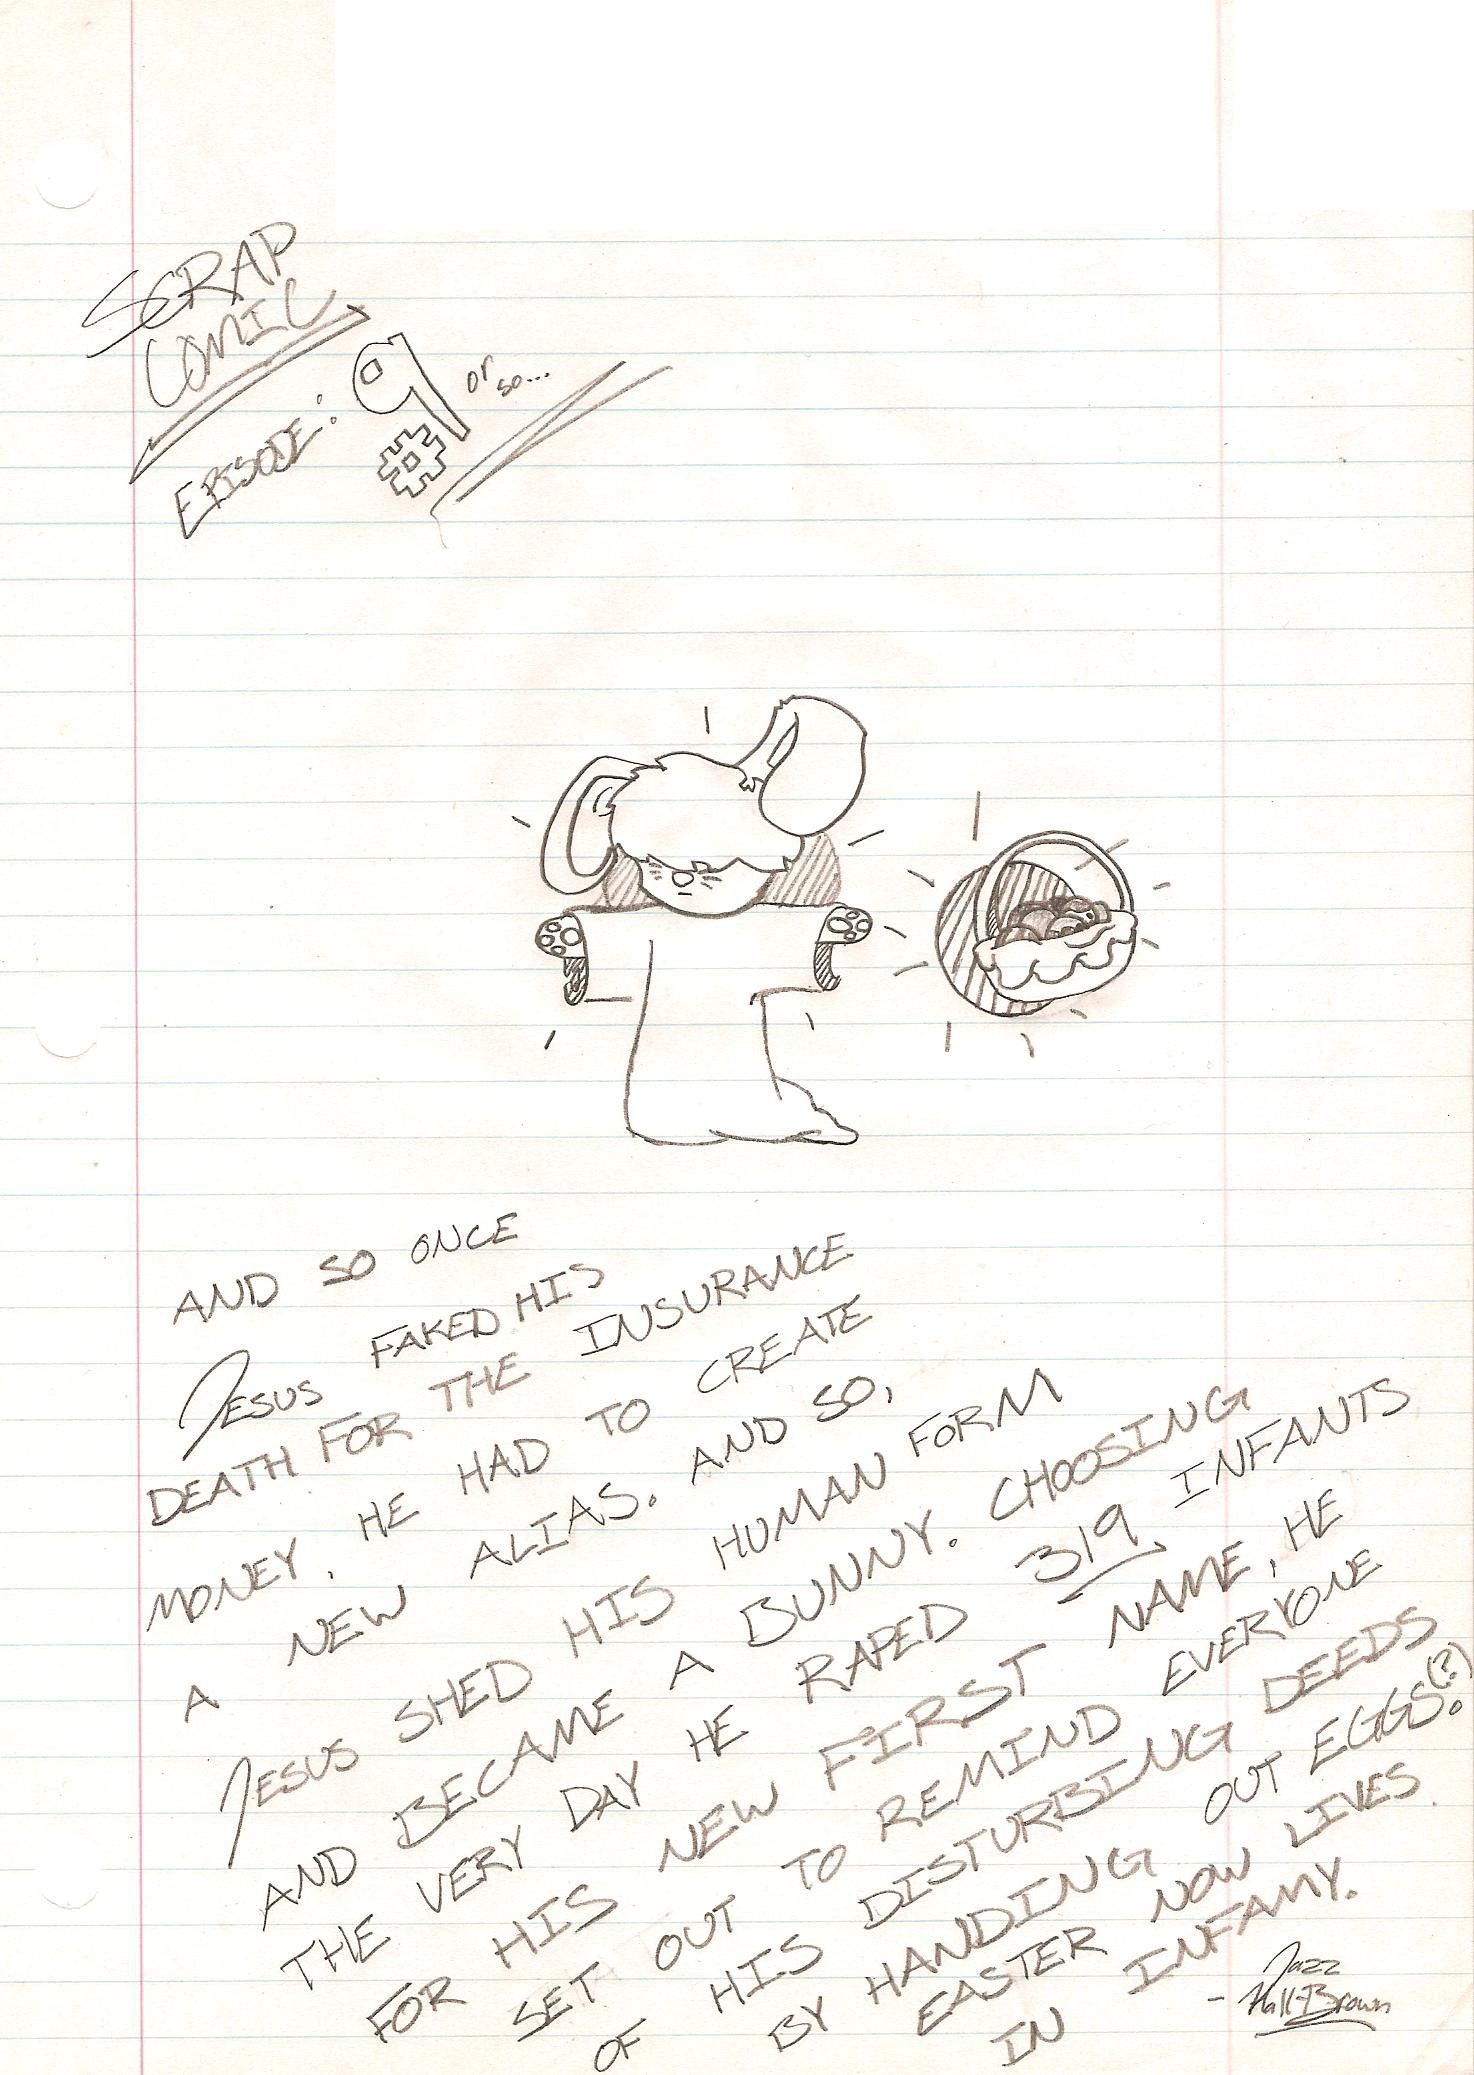 SCRAP
COMIC
EPISODE: #9 or so...
AND SO ONCE
JESUS FAKED HIS
DEATH FOR THE INSURANCE
MONEY, HE HAD TO CREATE
A NEW ALIAS. AND SO,
JESUS SHED HIS HUMAN FORM
AND BECAME A BUNNY. CHOOSING
THE VERY DAY HE RAPED 319 INFANTS
FOR HIS NEW FIRST NAME, HE
SET OUT TO REMIND EVERYONE
OF HIS DISTURBING DEEDS
BY HANDING OUT EGGS.(?)
EASTER NOW LIVES
IN INFAMY.
- Jazz
Hall-Brown